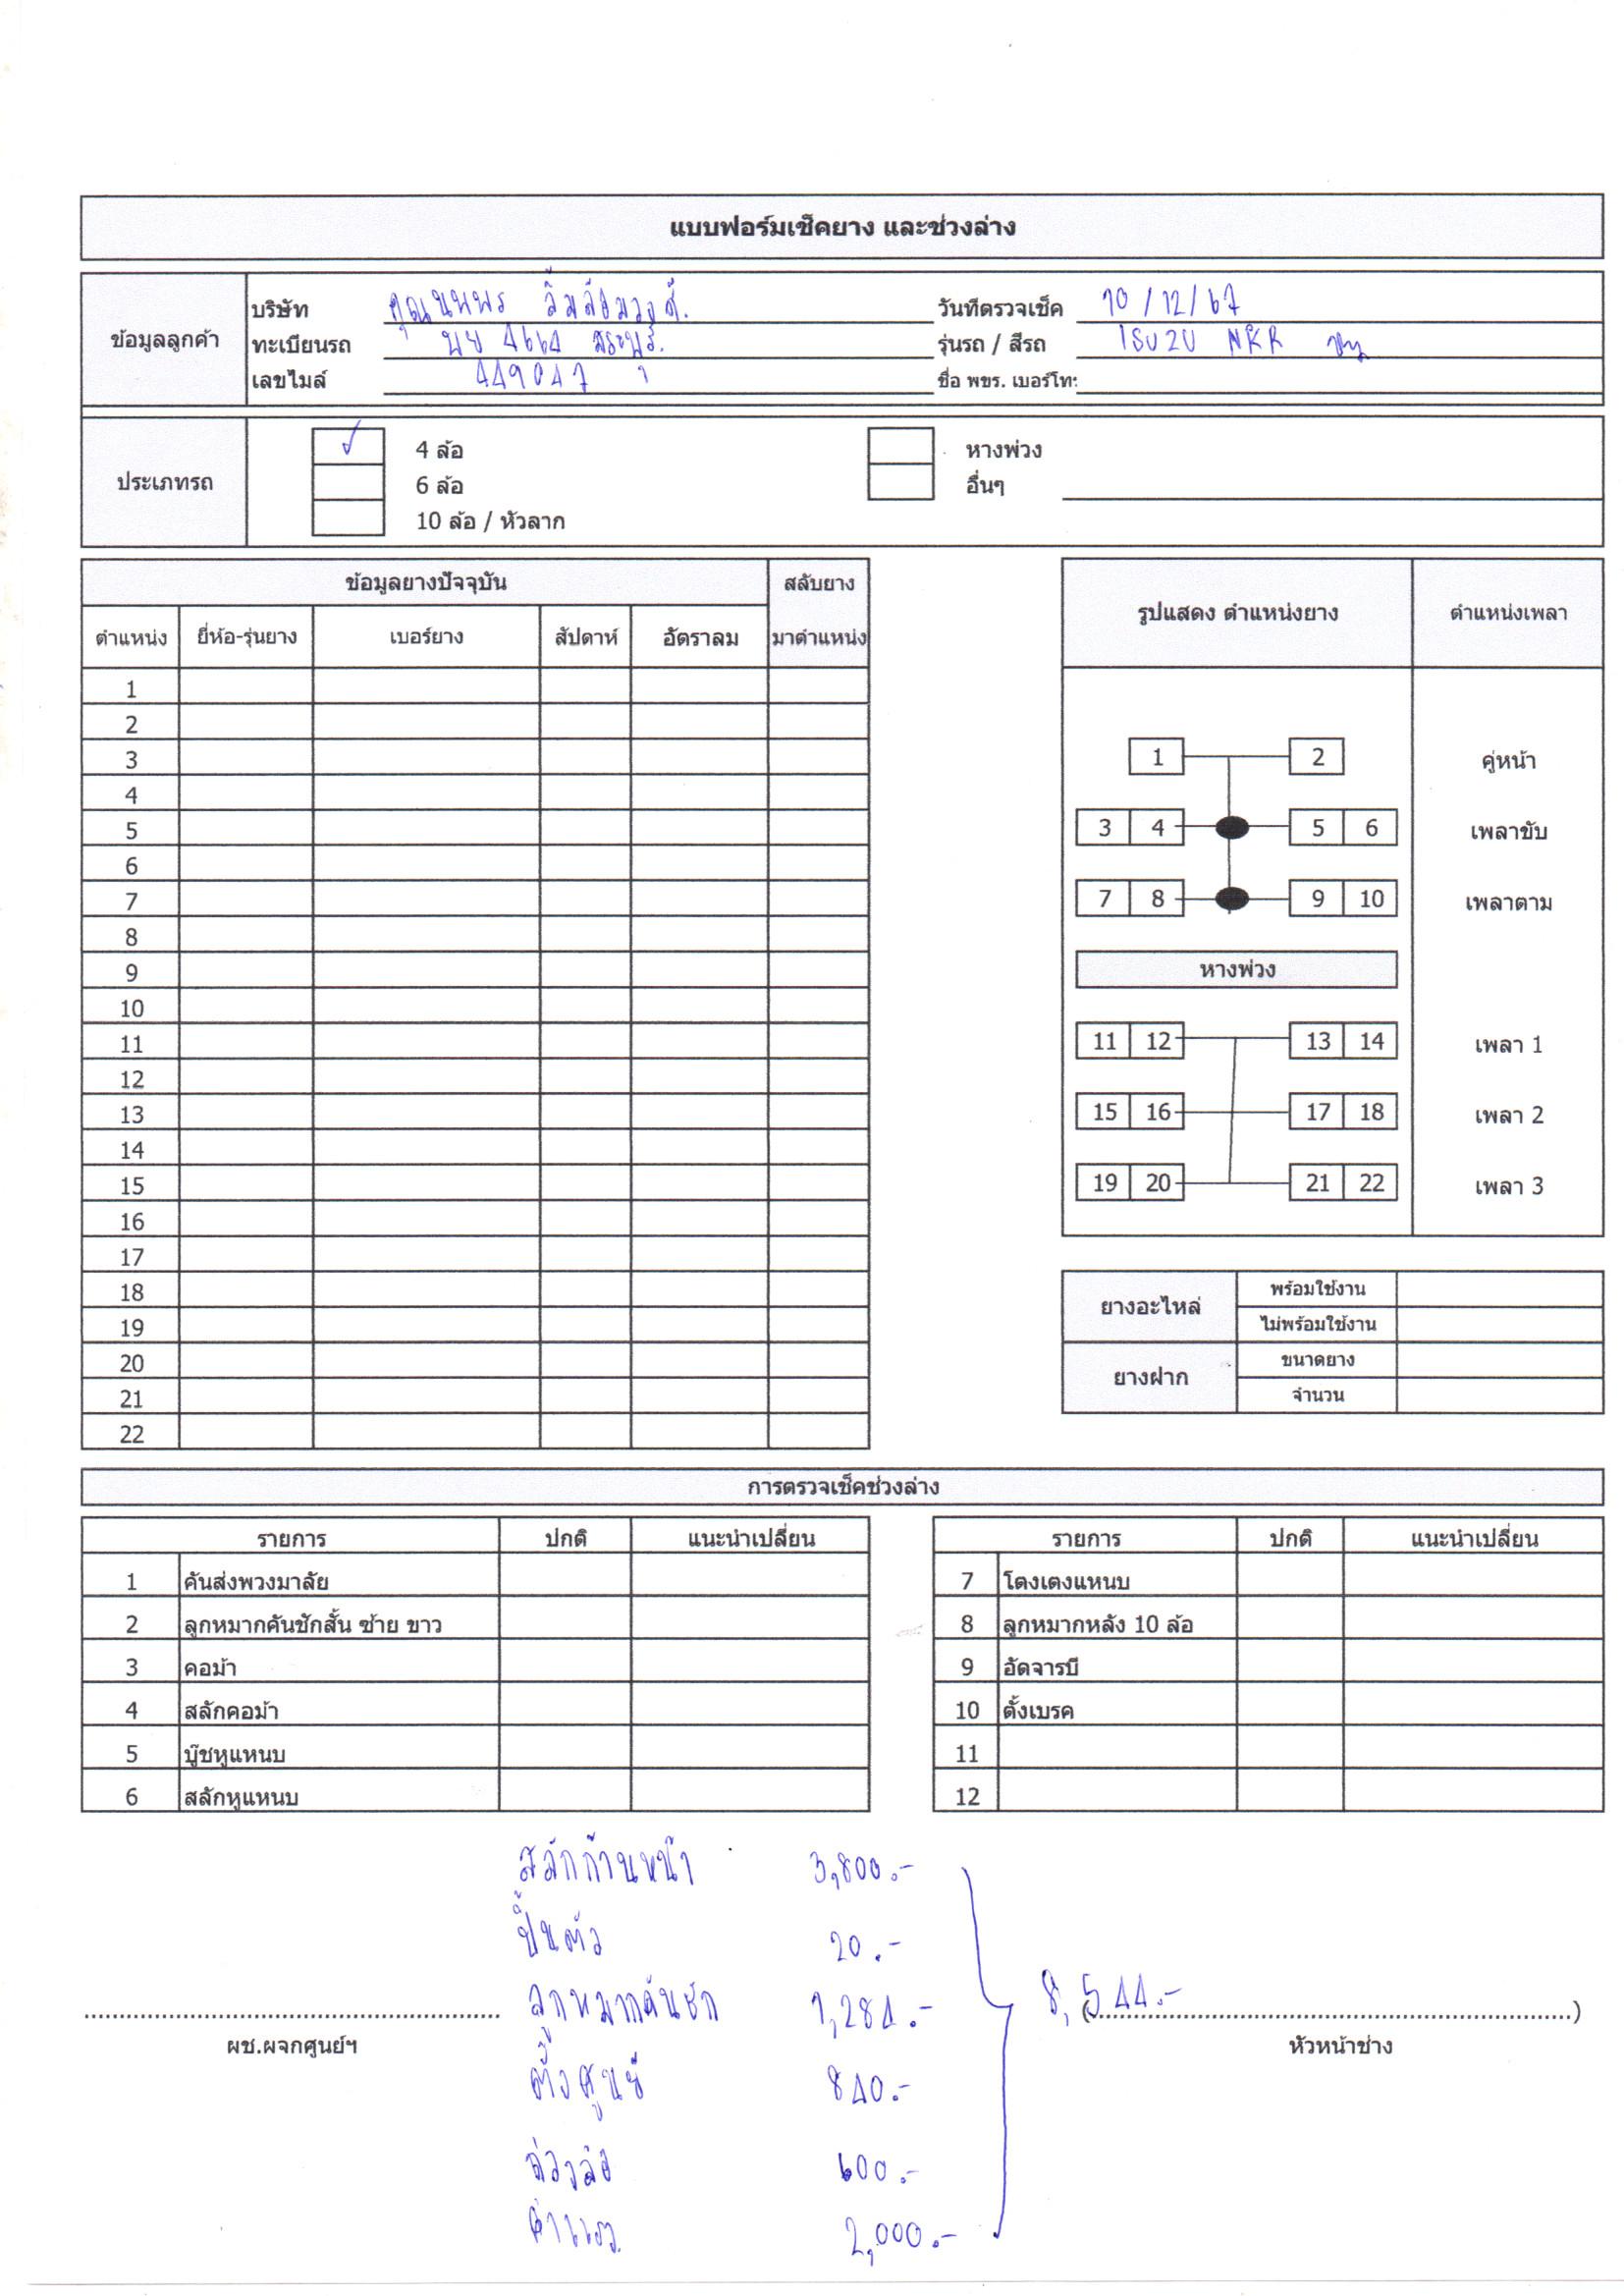 แบบฟอร์มเช็คยาง และช่วงล่าง
ข้อมูลลูกค้า
บริษัท คุณนพพร ลิ้มล้อมวงศ์.
วันที่ตรวจเช็ค 10/12/67
ทะเบียนรถ 4664 สระบุรี.
รุ่นรถ / สีรถ ISUZU NKR
เลขไมล์ 449047
ชื่อ พขร. เบอร์โทร
ประเภทรถ
✓ 4 ล้อ
6 ล้อ
10 ล้อ / หัวลาก
หางพ่วง
อื่นๆ
ข้อมูลยางปัจจุบัน สลับยาง
ตำแหน่ง ยี่ห้อ-รุ่นยาง เบอร์ยาง สัปดาห์ อัตราลม มาตำแหน่ง
1
2
3
4
5
6
7
8
9
10
11
12
13
14
15
16
17
18
19
20
21
22
รูปแสดง ตำแหน่งยาง ตำแหน่งเพลา
1 2 คู่หน้า
3 4 5 6 เพลาขับ
7 8 9 10 เพลาตาม
หางพ่วง
11 12 13 14 เพลา 1
15 16 17 18 เพลา 2
19 20 21 22 เพลา 3
ยางอะไหล่ พร้อมใช้งาน
ไม่พร้อมใช้งาน
ยางฝาก ขนาดยาง
จำนวน
การตรวจเช็คช่วงล่าง
รายการ ปกติ แนะนำเปลี่ยน
1 คันส่งพวงมาลัย
2 ลูกหมากคันชักสั้น ซ้าย ขาว
3 คอม้า
4 สลักคอม้า
5 บู๊ชหูแหนบ
6 สลักหูแหนบ
รายการ ปกติ แนะนำเปลี่ยน
7 โตงเตงแหนบ
8 ลูกหมากหลัง 10 ล้อ
9 อัดจารบี
10 ตั้งเบรค
11
12
สลักก้านหน้า 3,800.-
ปิ้นตัว 20.-
ลูกหมากคันชัก 1,284.-
ตั้งศูนย์ 840.-
ถ่วงล้อ 600.-
ค่าแรง 2,000.-
8,544.-
ผช.ผจกศูนย์ฯ
(....................)
หัวหน้าช่าง